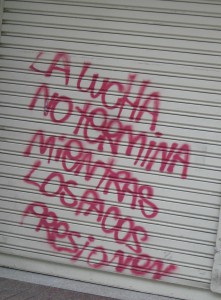 LA LUCHA
NO TERMINA
MIENTRAS
LOS PACOS
PRESIONEN